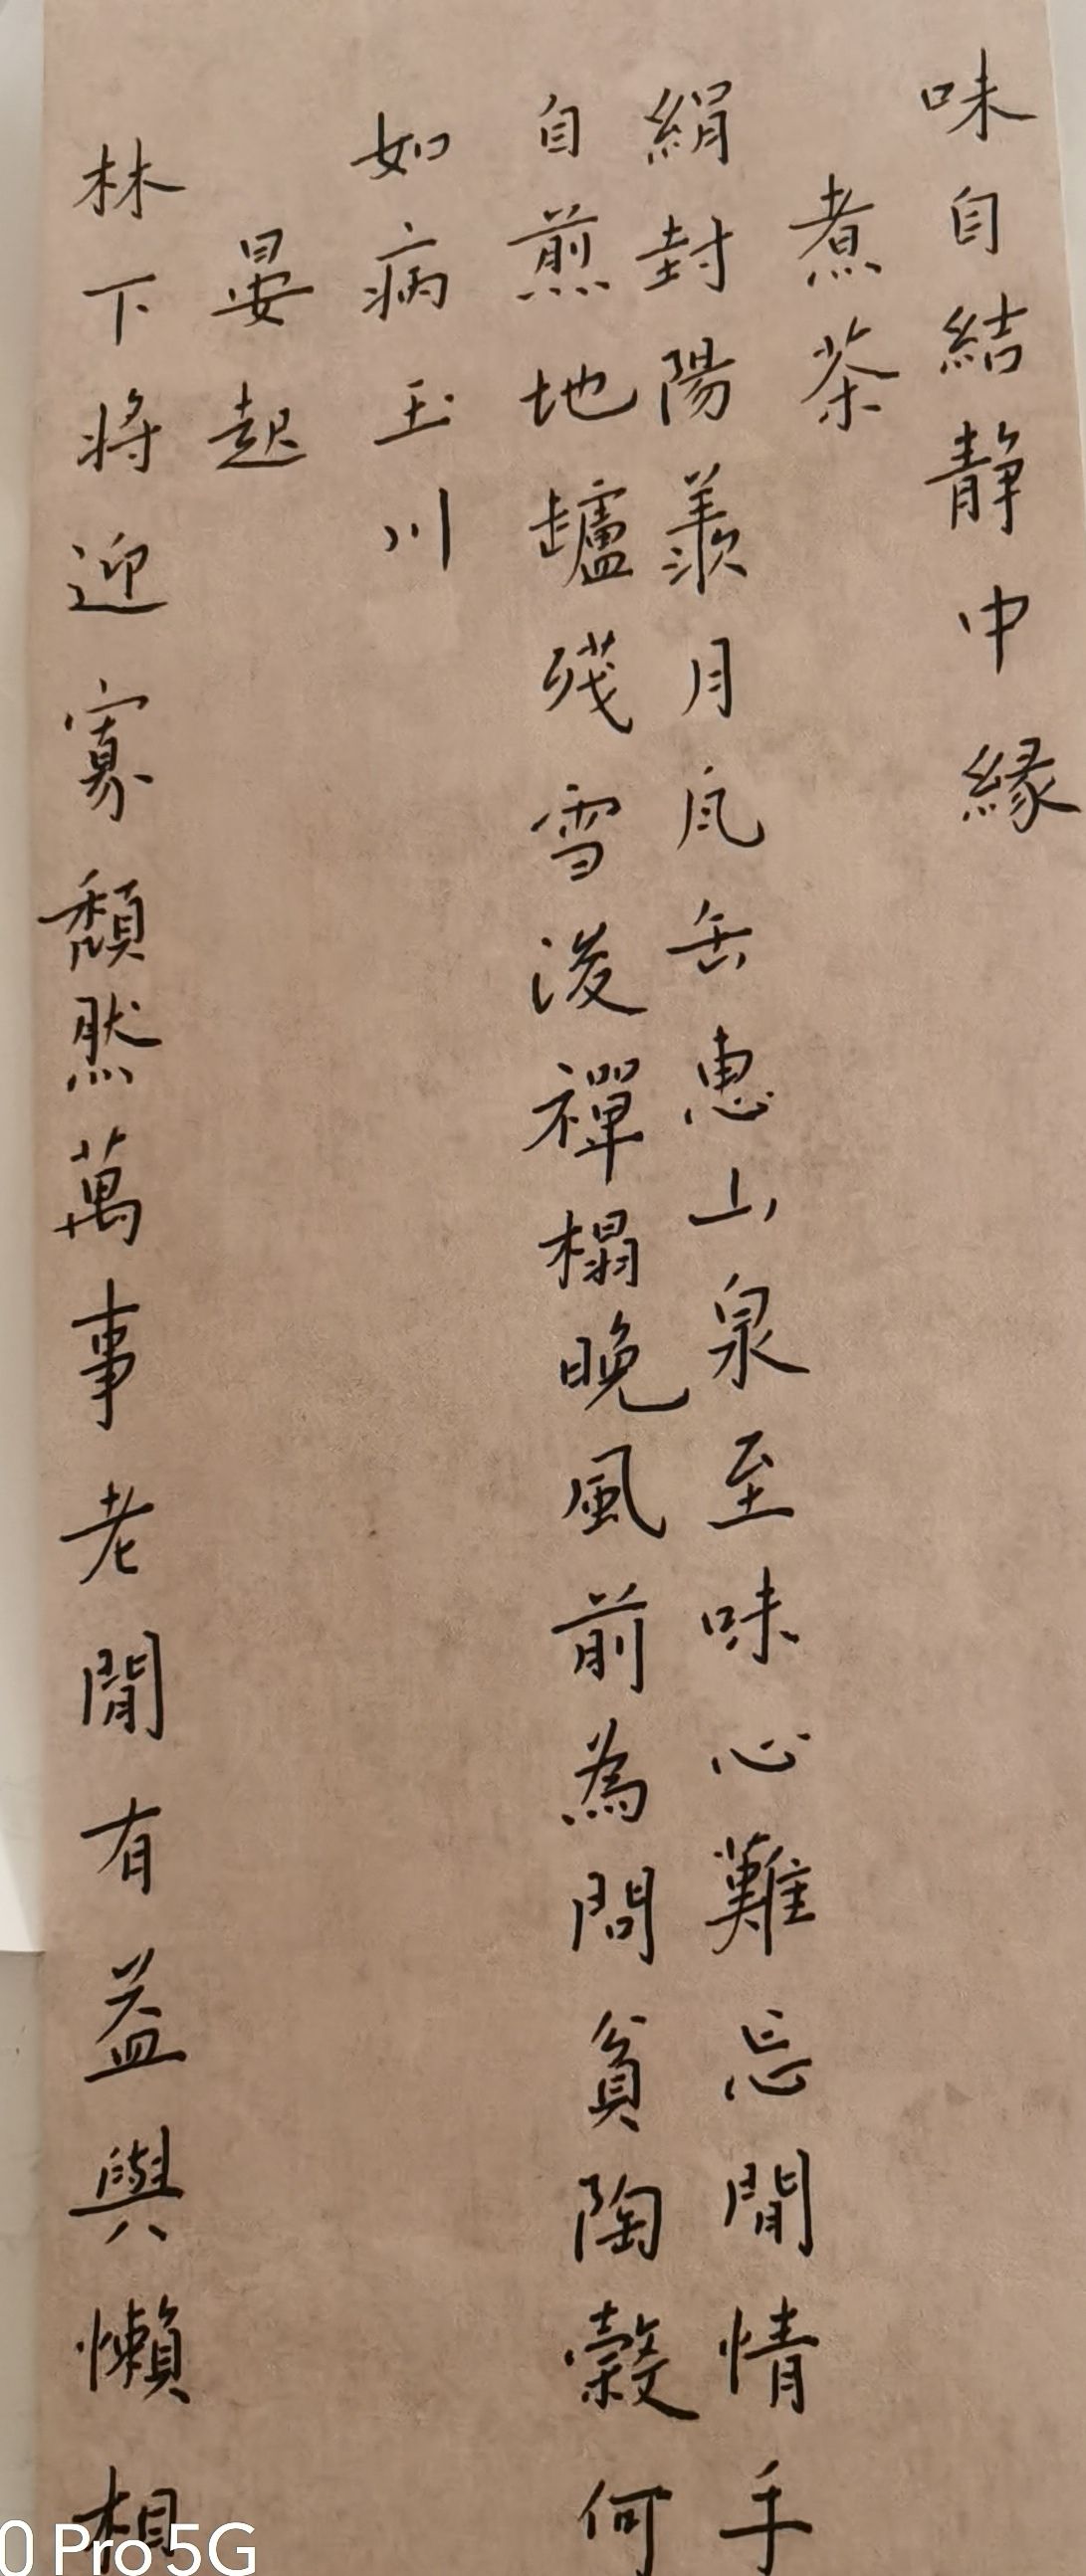 味自結靜中緣
煮茶
絹封陽羡月瓦缶惠山泉至味心難忘閒情手
自煎地爐殘雪後禪榻晚風前為問貧陶穀何
如病玉川
晏起
林下將迎寡頹然萬事老閒有益與懶相
0 Pro 5G